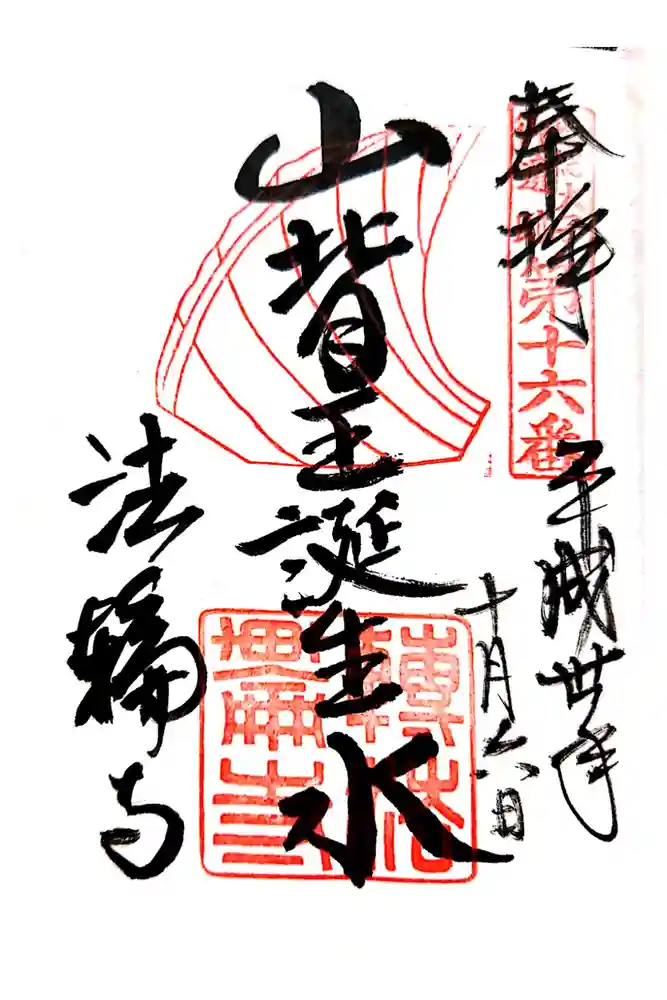 奉拝
第十六番
平成丗年
十月六日
山背王誕生水
法輪寺